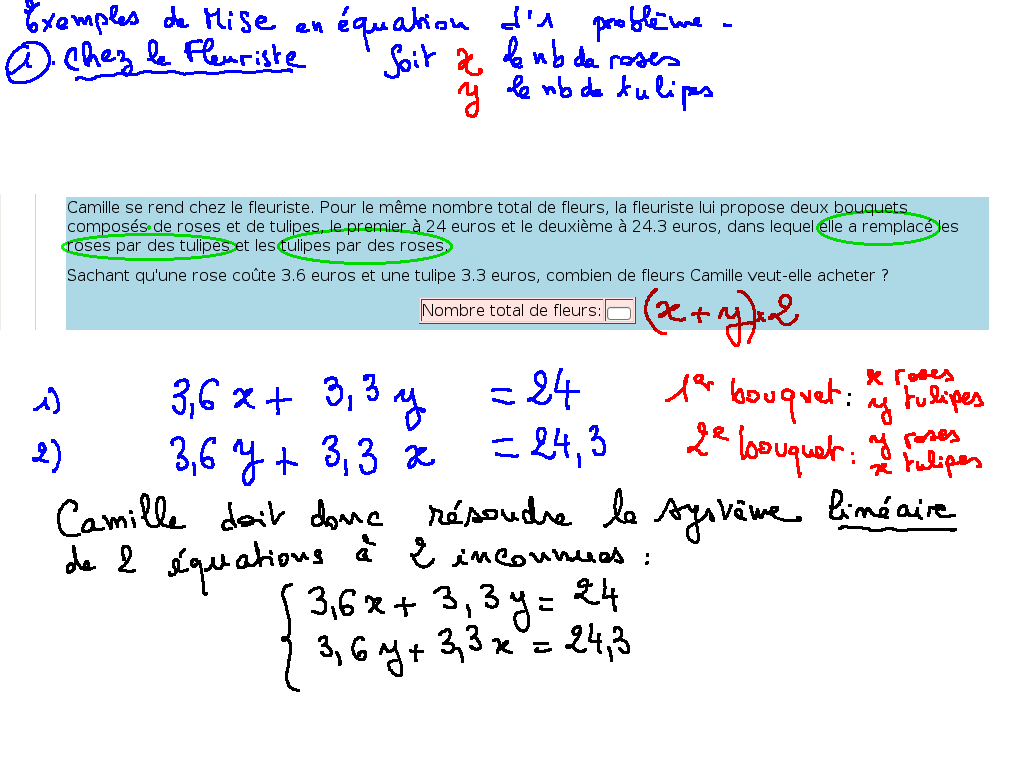 Exemples de Mise en équation d'1 problème.
1. Chez le Fleuriste Soit x le nb de roses
y le nb de tulipes
Camille se rend chez le fleuriste. Pour le même nombre total de fleurs, la fleuriste lui propose deux bouquets
composés de roses et de tulipes, le premier à 24 euros et le deuxième à 24.3 euros, dans lequel elle a remplacé les
roses par des tulipes et les tulipes par des roses.
Sachant qu'une rose coûte 3.6 euros et une tulipe 3.3 euros, combien de fleurs Camille veut-elle acheter ?
Nombre total de fleurs: (x + y) × 2
1) 3,6 x + 3,3 y = 24 1er bouquet : x roses
y tulipes
2) 3,6 y + 3,3 x = 24,3 2e bouquet : y roses
x tulipes
Camille doit donc résoudre le système linéaire
de 2 équations à 2 inconnues :
{ 3,6 x + 3,3 y = 24
3,6 y + 3,3 x = 24,3